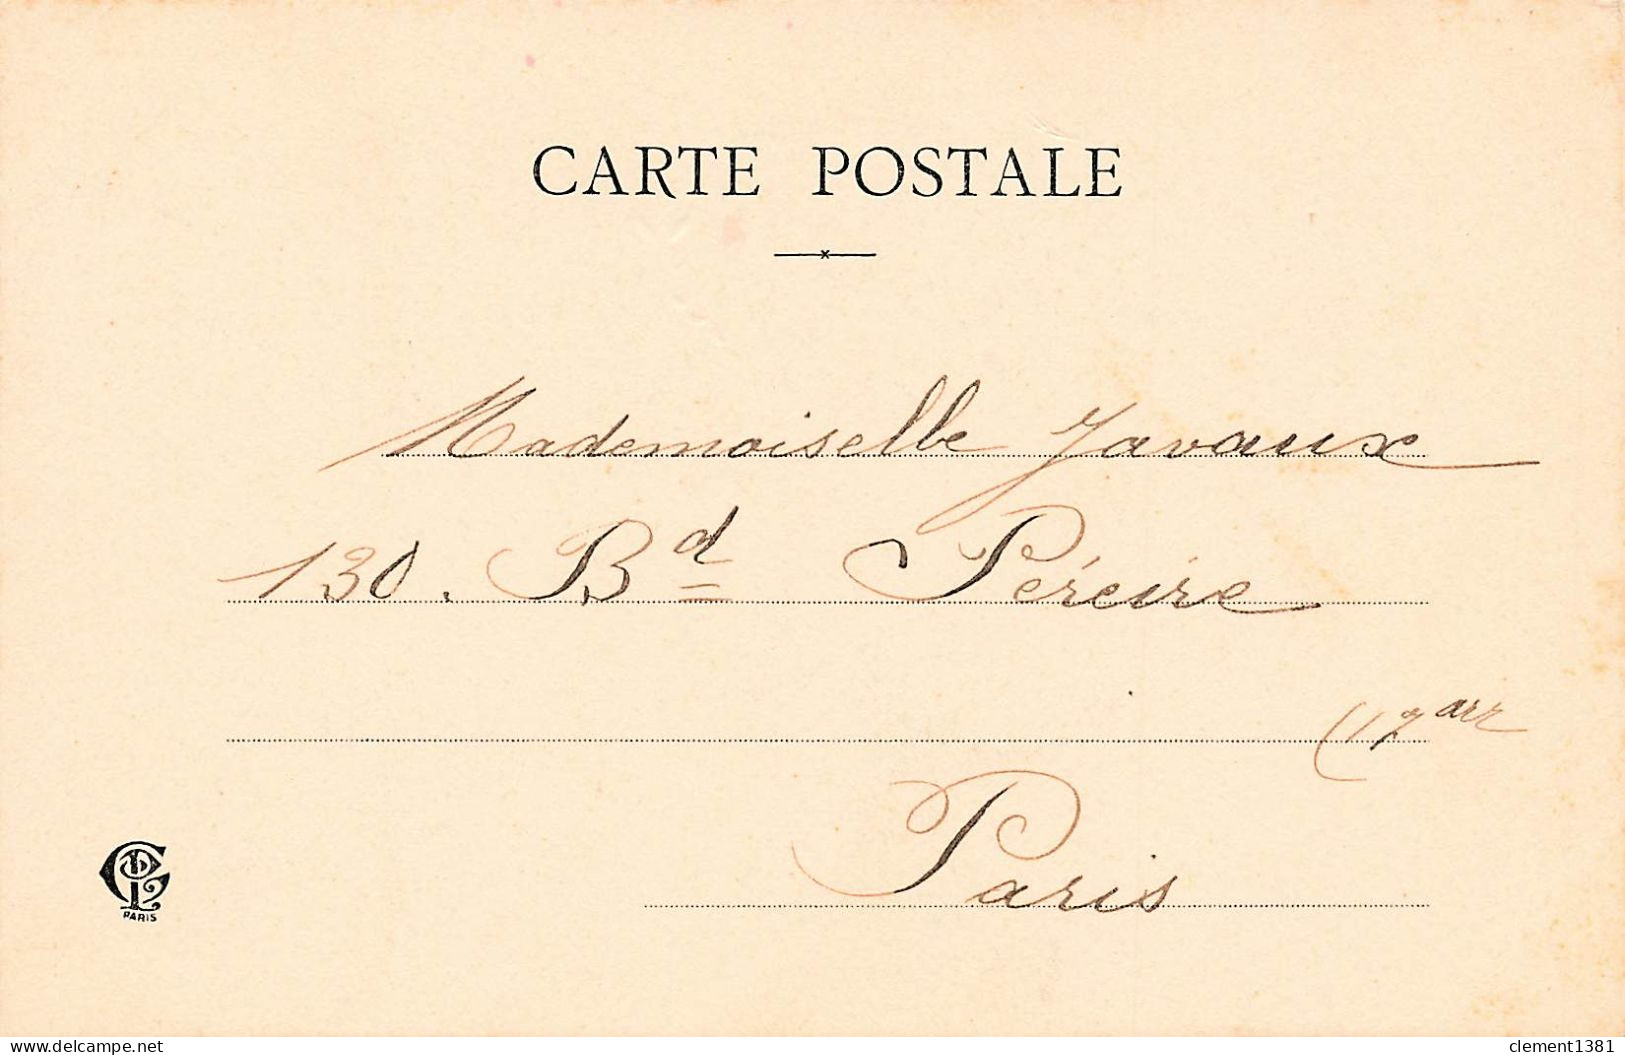 CARTE POSTALE
Mademoiselle Javaux
130. Bd Péreire
(17 arr
Paris
PARIS
www.delcampe.net
clement1381